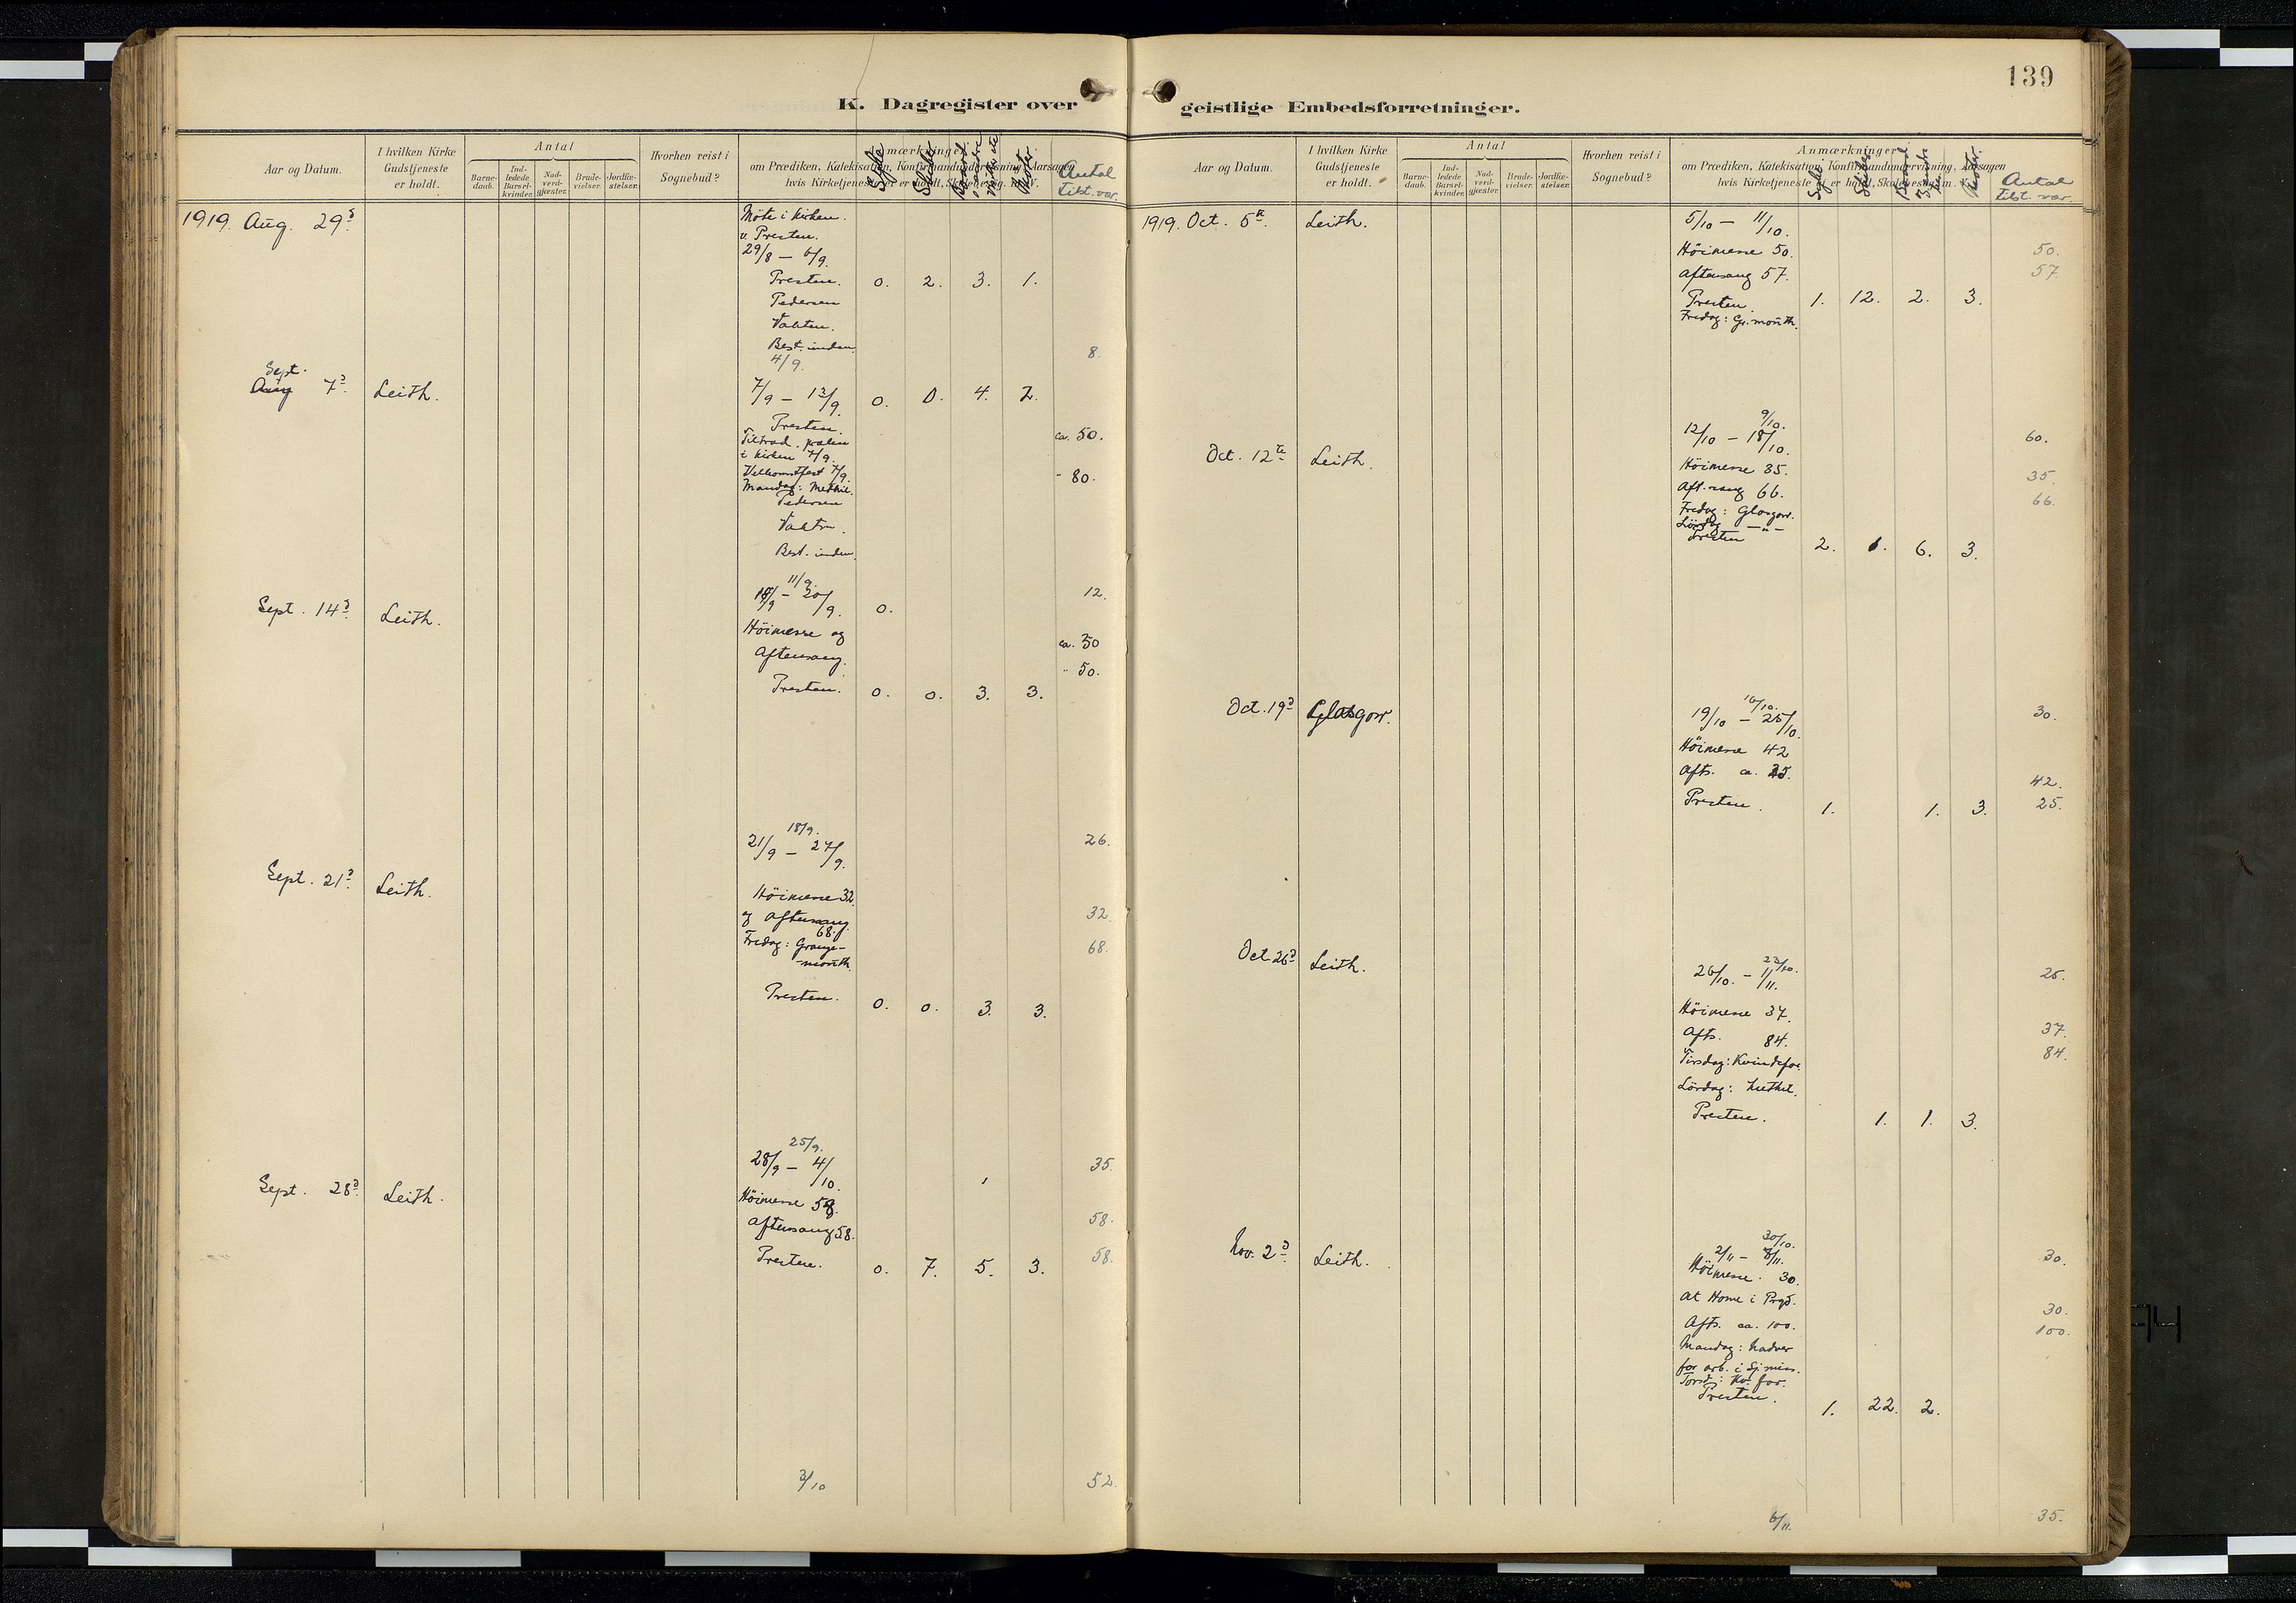 139
K. Dagregister over
geistlige Embedsforretninger.
Aar og Datum.
I hvilken Kirke
Gudstjeneste
er holdt.
Antal
Barne-
daab.
Ind-
ledede
Barsel-
kvinder.
Nad-
verd-
gjester.
Brude-
vielser.
Jordfæ-
stelser.
Hvorhen reist i
Sognebud?
Anmærkninger
om Prædiken, Katekisation, Konfirmandundervisning, Aarsagen
hvis Kirketjeneste ei er holdt, Skolebesøg m. V.
Syke
Skibe
Møter
Antal
tilst. var.
1919. Aug. 29d
Möte i kirken.
v. Presten.
29/8 – 6/9.
Presten. 0. 2. 3. 1.
Pedersen
Vakten.
Best. inden
4/9. 8.
Sept.
Aug 7d Leith.
7/9 – 13/9. 0. 0. 4. 2.
Presten.
Tiltræd. præken
i kirken 7/9. ca. 50.
Velkomstfest 7/9. " 80.
Mandag: Methil.
Pedersen
Vakten.
Best. inden.
11/9. 12.
Sept. 14d Leith.
14/9 – 20/9. 0.
Höimesse og ca. 30
Aftensang. " 50.
Presten. 0. 0. 3. 3.
18/9. 26.
21/9 – 27/9.
Sept. 21d Leith.
Höimesse 32.
og Aftensang 32.
68.
Fredag: Grange- 68.
-mouth.
Presten. 0. 0. 3. 3.
25/9.
28/9 – 4/10. 35.
Sept. 28d Leith.
Höimesse 58.
Aftensang 58. 58.
Presten. 0. 7. 5. 3. 58.
3/10 52.
Aar og Datum.
I hvilken Kirke
Gudstjeneste
er holdt.
Antal
Barne-
daab.
Ind-
ledede
Barsel-
kvinder.
Nad-
verd-
gjester.
Brude-
vielser.
Jordfæ-
stelser.
Hvorhen reist i
Sognebud?
Anmærkninger
om Prædiken, Katekisation, Konfirmandundervisning, Aarsagen
hvis Kirketjeneste ei er holdt, Skolebesøg m. V.
Syke
Skibe
Møter.
Antal
tilst. var.
1919. Oct. 5te. Leith.
5/10 – 11/10.
Höimesse 50. 50.
Aftensang 57. 57.
Presten. 1. 12. 2. 3.
Fredag: Gr. mouth.
9/10.
12/10 – 18/10. 60.
Oct. 12te Leith.
Höimesse 35. 35.
Aft. sang 66. 66.
Fredag: Glasgow.
Lördag –"–
Presten 2. 1. 6. 3.
16/10.
Oct. 19d Glasgow.
19/10 – 25/10. 30.
Höimesse 42
Afts. ca. 25. 42.
Presten. 1. 1. 3. 25.
23/10.
Oct 26d Leith.
26/10. – 1/11. 25.
Höimesse 37. 37.
Afts. 84. 84.
Tirsdag: Kvindefor.
Lördag: Methil.
Presten. 1. 1. 3.
30/10.
Nov. 2d Leith.
2/11 – 8/11. 30.
Höimesse. 30.
At Home i Prgd. 30.
Afts. ca. 100. 100.
Mandag: Nadver
for arb. i Sj. miss.
Torsd: Kv. for.
Presten. 1. 22. 2.
6/11. 35.